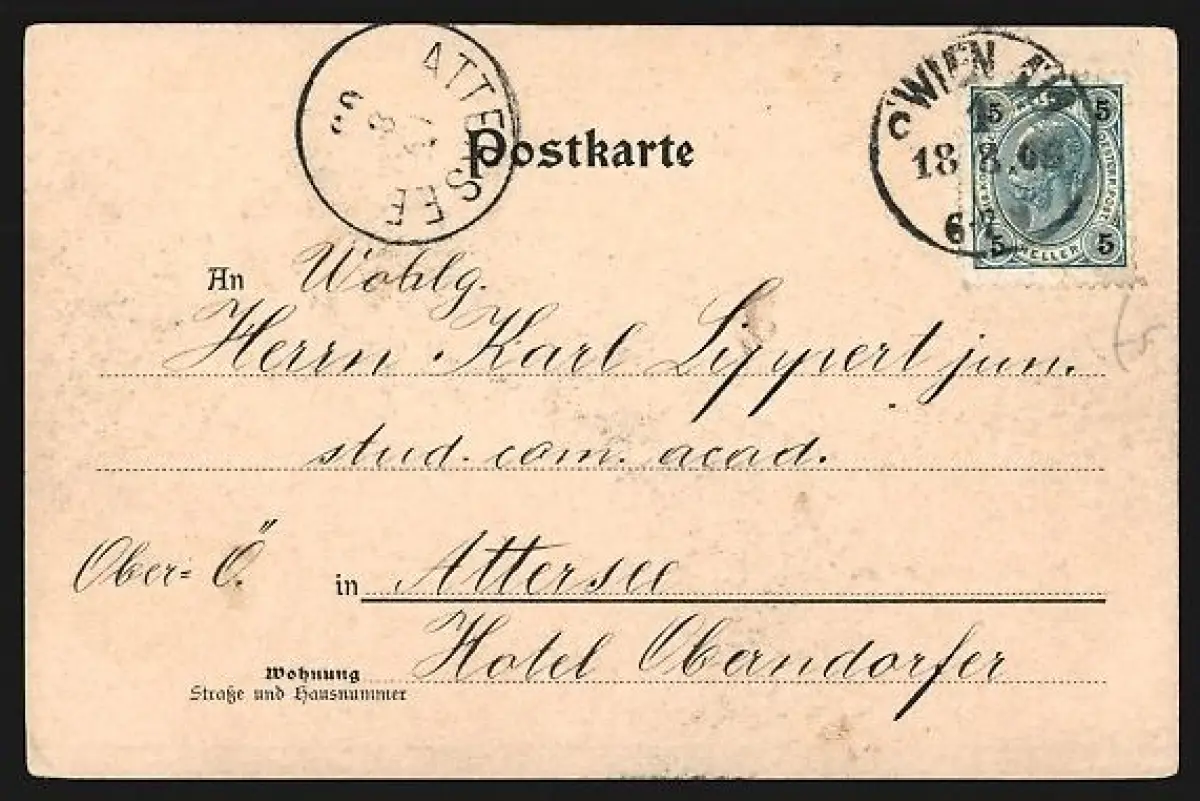 ATTERSEE
WIEN
18 8
Postkarte
5 5
5 HELLER 5
An Wohlg.
Herrn Karl Lippert jun.
stud. com. acad.
Ober=Ö. in Attersee
Hotel Oberndorfer
Wohnung
Straße und Hausnummer